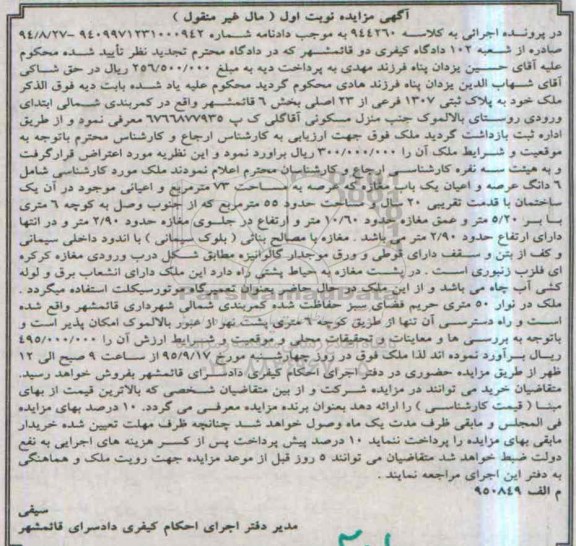 آگهی مزایده نوبت اول ( مال غیر منقول )
در پرونده اجرائی به کلاسه ۹۴۴۲۶۰ به موجب دادنامه شماره ۹۴۰۹۹۷۱۲۳۱۰۰۰۹۴۲ -۹۴/۸/۲۷
صادره از شعبه ۱۰۲ دادگاه کیفری دو قائمشهر که در دادگاه محترم تجدید نظر تأیید شده محکوم
علیه آقای حسین یزدان پناه فرزند مهدی به پرداخت دیه به مبلغ ۲۵۶/۵۰۰/۰۰۰ ریال در حق شاکی
آقای شهاب الدین یزدان پناه فرزند هادی محکوم گردید محکوم علیه یاد شده بابت دیه فوق الذکر
ملک خود به پلاک ثبتی ۱۳۰۷ فرعی از ۲۳ اصلی بخش ۶ قائمشهر واقع در کمربندی شمالی ابتدای
ورودی روستای بالالموک جنب منزل مسکونی آقاگلی ک پ ۶۷۶۶۸۷۷۹۳۵ معرفی نمود و از طریق
اداره ثبت بازداشت گردید ملک فوق جهت ارزیابی به کارشناس ارجاع و کارشناس محترم باتوجه به
موقعیت و شرایط ملک آن را ۳۰۰/۰۰۰/۰۰۰ ریال براورد نمود و این نظریه مورد اعتراض قرارگرفت
و به هیئت سه نفره کارشناسی ارجاع و کارشناسان محترم اعلام نمودند ملک مورد کارشناسی شامل
۶ دانگ عرصه و اعیان یک باب مغازه که عرصه به مساحت ۷۳ مترمربع و اعیانی موجود در آن یک
ساختمان با قدمت تقریبی ۲۰ سال و مساحت حدود ۵۵ مترمربع که از جنوب وصل به کوچه ۶ متری
با بر ۵/۲۰ متر و عمق مغازه حدود ۱۰/۶۰ متر و ارتفاع در جلوی مغازه حدود ۲/۹۰ متر و در انتها
دارای ارتفاع حدود ۲/۹۰ متر می باشد . مغازه با مصالح بنائی ( بلوک سیمانی ) با اندود داخلی سیمانی
و کف از بتن و سقف دارای قوطی و ورق موجدار گالوانیزه مطابق شکل درب ورودی مغازه کرکره
ای فلزی زنبوری است . در پشت مغازه به حیاط پشتی راه دارد این ملک دارای انشعاب برق و لوله
کشی آب چاه می باشد و از این ملک در حال حاضر بعنوان تعمیرگاه موتورسیکلت استفاده میگردد .
ملک در نوار ۵۰ متری حریم فضای سبز حفاظت شده کمربندی شمالی شهرداری قائمشهر واقع شده
است و راه دسترسی آن تنها از طریق کوچه ۶ متری پشت نهر از عبور بالالموک امکان پذیر است و
باتوجه به بررسی ها و معاینات و تحقیقات محلی و موقعیت و شرایط ارزش آن را ۴۹۵/۰۰۰/۰۰۰
ریال برآورد نموده اند لذا ملک فوق در روز چهارشنبه مورخ ۹۵/۹/۱۷ از ساعت ۹ صبح الی ۱۲
ظهر از طریق مزایده حضوری در دفتر اجرای احکام کیفری دادسرای قائمشهر بفروش خواهد رسید.
متقاضیان خرید می توانند در مزایده شرکت و از بین متقاضیان شخصی که بالاترین قیمت از بهای
مبنا ( قیمت کارشناسی ) را ارائه دهد بعنوان برنده مزایده معرفی می گردد. ۱۰ درصد بهای مزایده
فی المجلس و مابقی ظرف مدت یک ماه وصول خواهد شد چنانچه ظرف مهلت تعیین شده خریدار
مابقی بهای مزایده را پرداخت ننماید ۱۰ درصد پیش پرداخت پس از کسر هزینه های اجرایی به نفع
دولت ضبط خواهد شد متقاضیان می توانند ۵ روز قبل از موعد مزایده جهت رویت ملک و هماهنگی
به دفتر این اجرای مراجعه نمایند .
م الف ۹۵۰۸۴۹
سیفی
مدیر دفتر اجرای احکام کیفری دادسرای قائمشهر